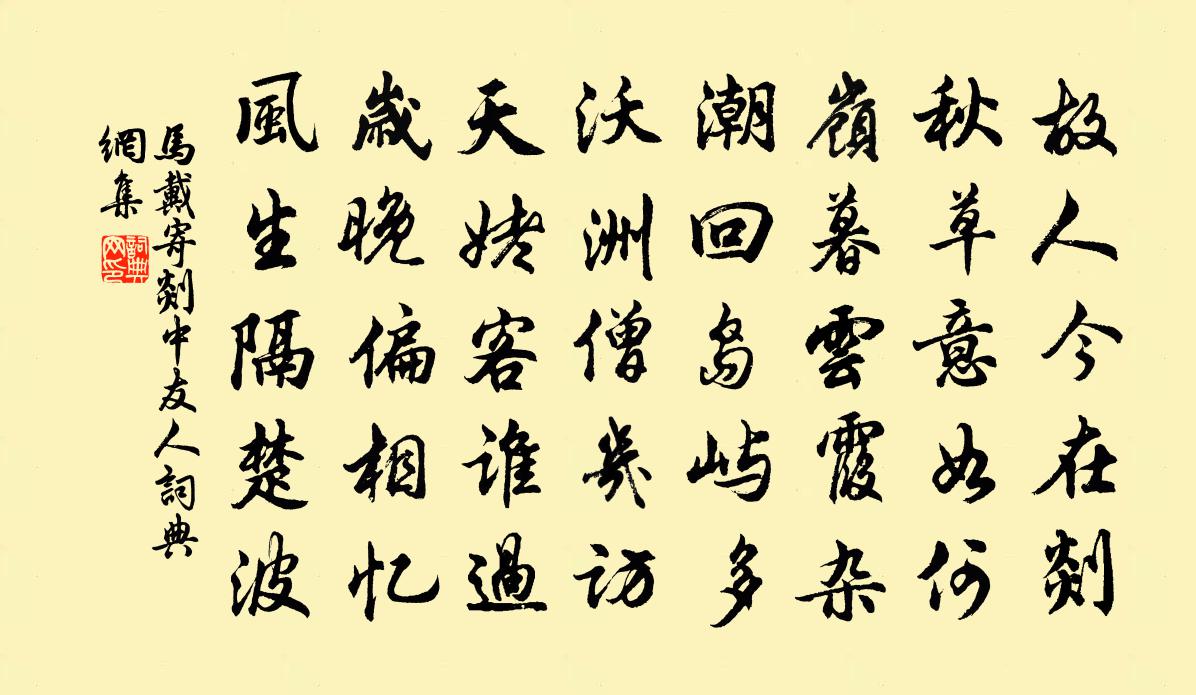 故人今在剡
秋草意如何
嶺暮雲霞杂
潮回島嶼多
沃洲僧幾訪
天姥客誰過
歲晚偏相忆
風生隔楚波
馬戴寄剡中友人詞典
網集
詞典
网印